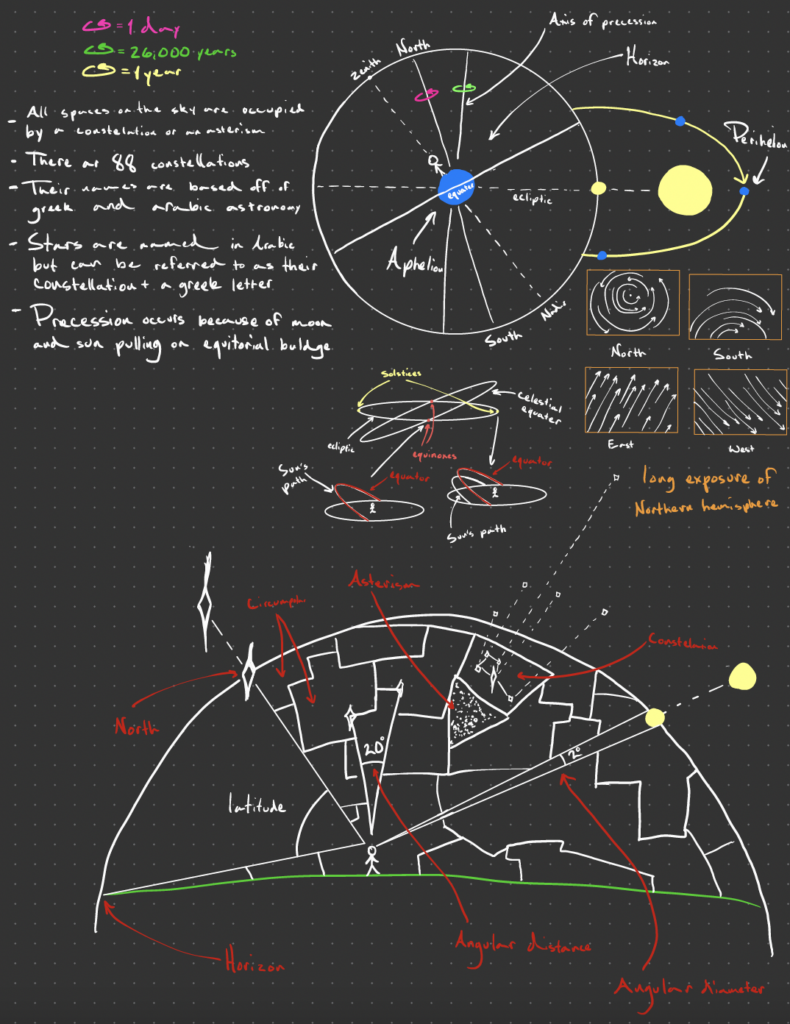 = 1 day
= 26,000 years
= 1 year
- All spaces on the sky are occupied
by a constelation or an asterism
- There ar 88 constellations
- Their names are based off of
greek and arabic astronomy
- Stars are named in Arabic
but can be referred to as their
constellation + a greek letter
- Precession occurs because of moon
and sun pulling on equitorial buldge
Axis of precession
North
Zenith
Horizon
Perihelion
equator
ecliptic
Aphelion
Nadir
South
North
South
East
West
long exposure of
Northern hemisphere
Solstices
Celestial
equator
ecliptic
equinoxes
Sun's
path
equator
equator
Sun's path
Asterism
Constelation
North
20°
2°
latitude
Angular distance
Horizon
Angular diameter